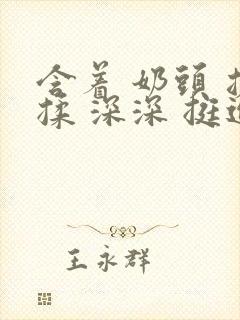 含着 奶頭
揉 深深 挺
王永群